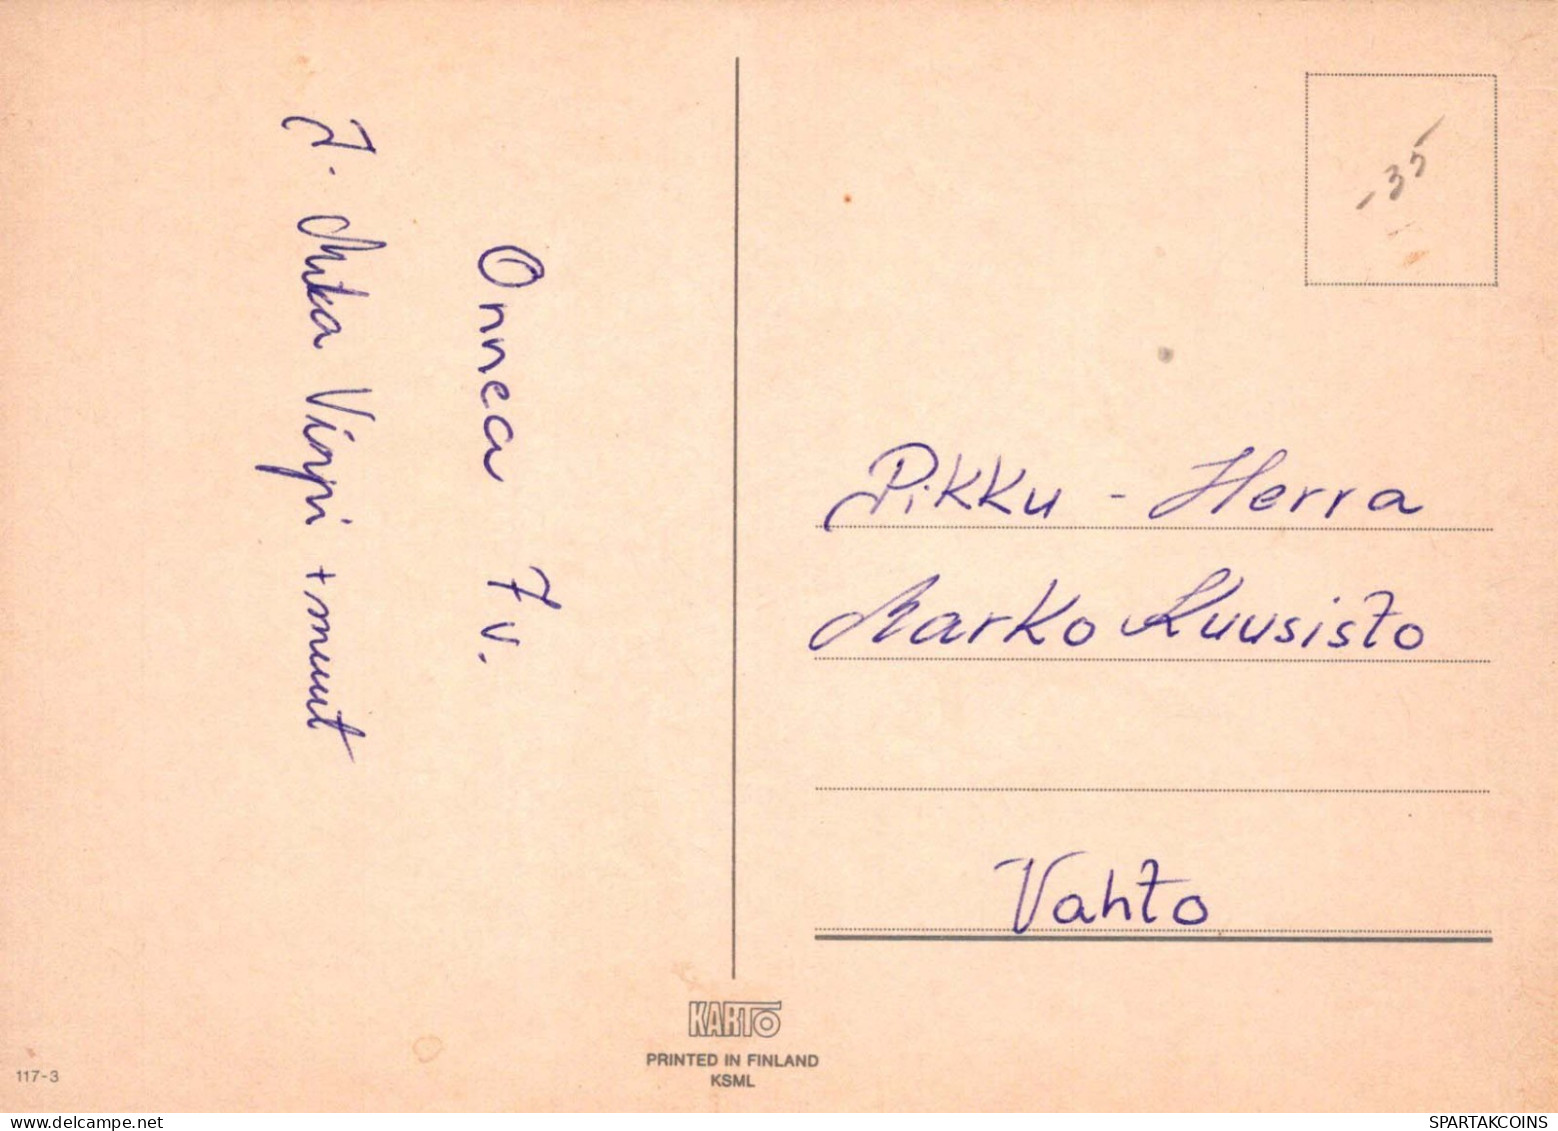 Onnea 7v.
T. Mika Virpi + muut
-35
Pikku - Herra
Marko Kuusisto
Vahto
KARTO
PRINTED IN FINLAND
KSML
117-3
delcampe.net
SPARTAKCOINS